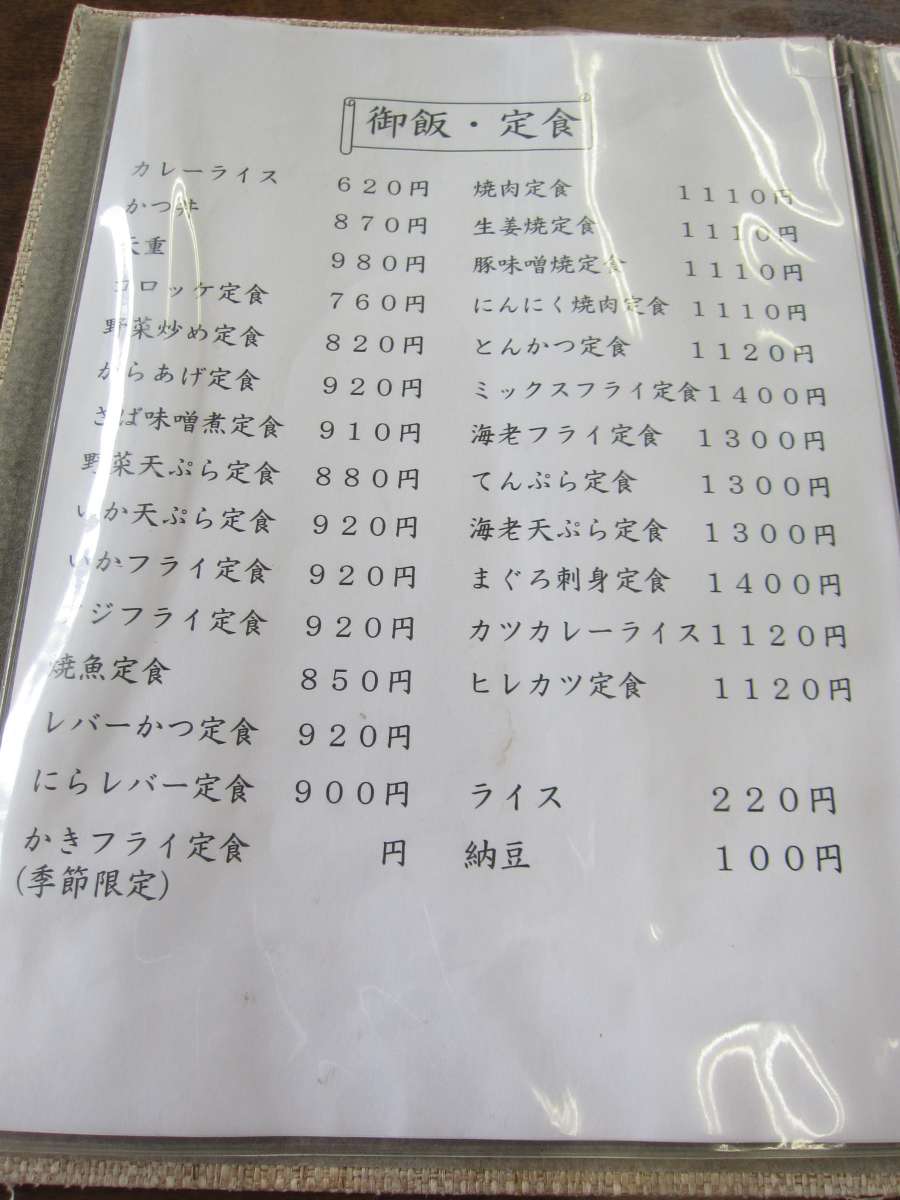 御飯・定食
カレーライス 620円
かつ丼 870円
天重 980円
コロッケ定食 760円
野菜炒め定食 820円
からあげ定食 920円
さば味噌煮定食 910円
野菜天ぷら定食 880円
いか天ぷら定食 920円
いかフライ定食 920円
アジフライ定食 920円
焼魚定食 850円
レバーかつ定食 920円
にらレバー定食 900円
かきフライ定食 円
(季節限定)
焼肉定食 1110円
生姜焼定食 1110円
豚味噌焼定食 1110円
にんにく焼肉定食 1110円
とんかつ定食 1120円
ミックスフライ定食 1400円
海老フライ定食 1300円
てんぷら定食 1300円
海老天ぷら定食 1300円
まぐろ刺身定食 1400円
カツカレーライス 1120円
ヒレカツ定食 1120円
ライス 220円
納豆 100円